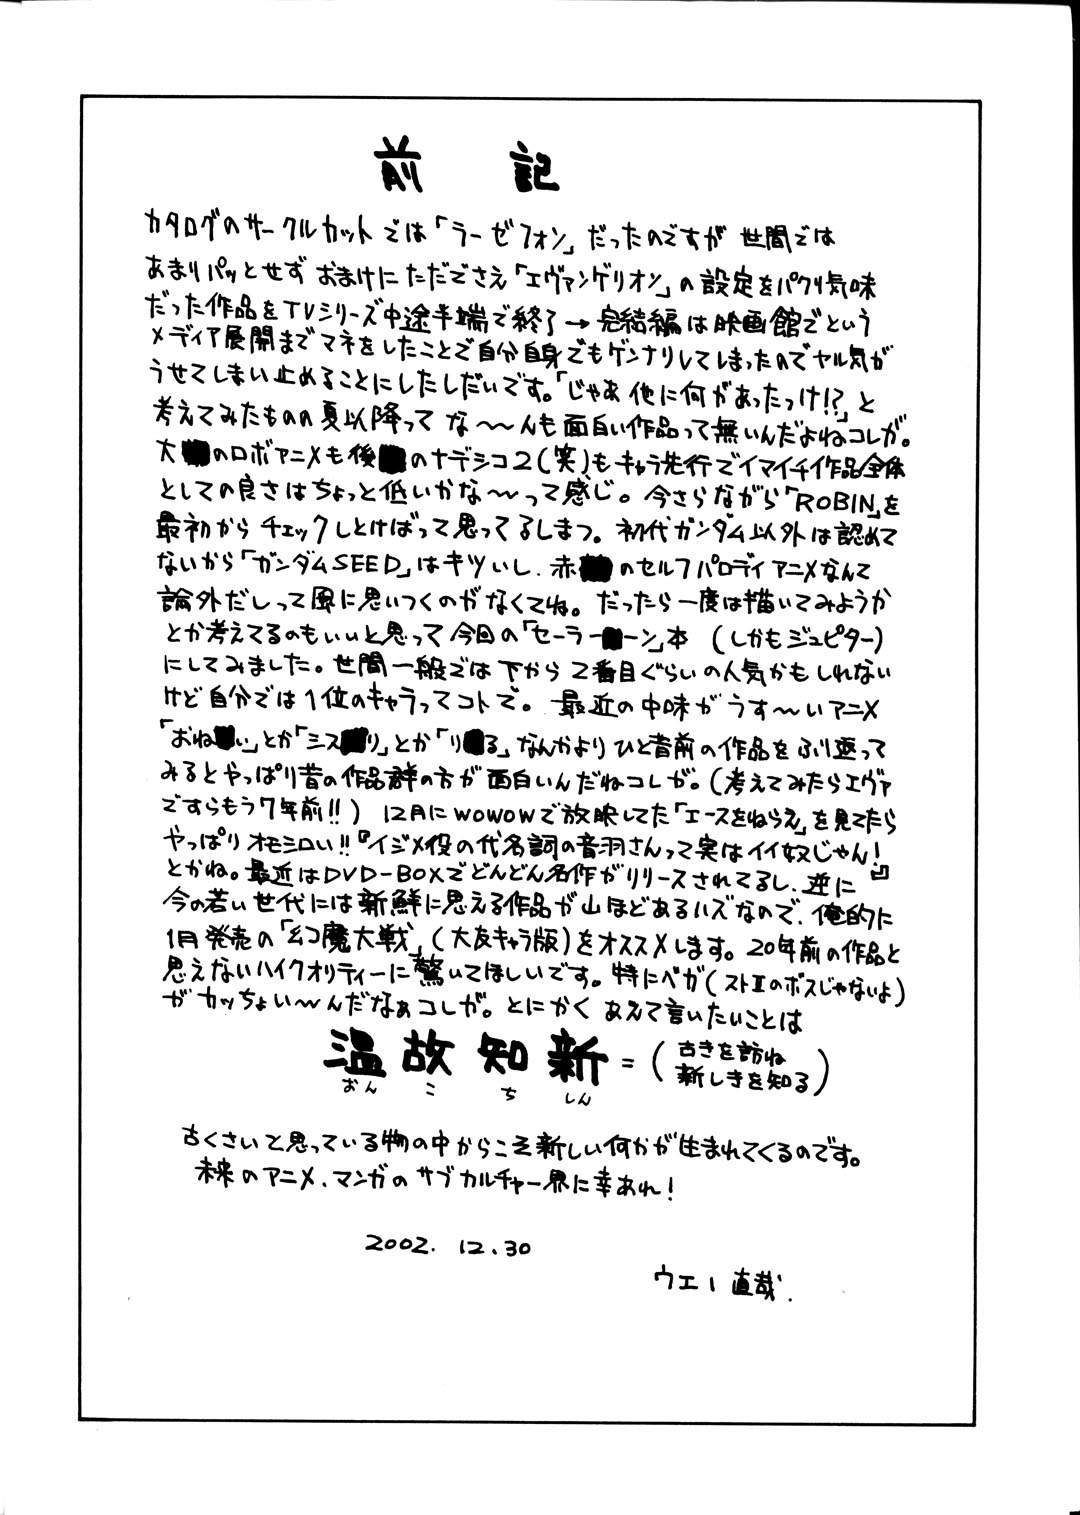 前記
カタログのサークルカットでは「ラーゼフォン」だったのですが 世間では
あまりパッとせず おまけに ただでさえ「エヴァンゲリオン」の設定をパクリ気味
だった作品をTVシリーズ中途半端で終了→完結編は映画館でという
メディア展開までマネをしたことで自分自身でもゲンナリしてしまったのでヤル気が
うせてしまい止めることにしたしだいです。「じゃあ他に何があったっけ!?」と
考えてみたものの夏以降って な〜〜んも面白い作品って無いんだよねコレが。
大のロボアニメも後のナデシコ2(笑)もキャラ先行でイマイチ作品全体
としての良さはちょっと低いかな〜〜って感じ。今さらながら「ROBIN」を
最初から チェックしとけばって思ってるしまつ。初代ガンダム以外は認めて
ないから「ガンダムSEED」はキツいし、赤のセルフパロディアニメなんて
論外だしって風に思いつくのがなくてね。だったら一度は描いてみようか
とか考えてるのもいいと思って今回の「セーラーーン」本 (しかもジュピター)
にしてみました。世間一般では下から2番目ぐらいの人気かもしれない
けど自分では1位のキャラってコトで。最近の中味がうす〜〜いアニメ
「おねい」とか「シスリ」とか「りる」なんかより ひと昔前の作品をふり返って
みるとやっぱり昔の作品群の方が面白いんだねコレが。(考えてみたらエヴァ
ですらもう7年前!!) 12月にWOWOWで放映してた「エースをねらえ」を見てたら
やっぱりオモシロい!!『イジメ役の代名詞の音羽さんって実はイイ奴じゃん!』
とかね。最近はDVD-BOXでどんどん名作がリリースされてるし、逆に
今の若い世代には新鮮に思える作品が山ほどあるハズなので、俺的に
1月発売の「幻魔大戦」(大友キャラ版)をオススメします。20年前の作品と
思えないハイクオリティーに驚いてほしいです。特にベガ(ストⅡのボスじゃないよ)
がカッちょい〜んだなぁコレが。とにかく あえて言いたいことは
温故知新=(古きを訪ね
新しきを知る)
おん こ ち しん
古くさいと思っている物の中からこそ新しい何かが生まれてくるのです。
未来のアニメ、マンガのサブカルチャー界に幸あれ!
2002. 12.30
ウエー直哉.